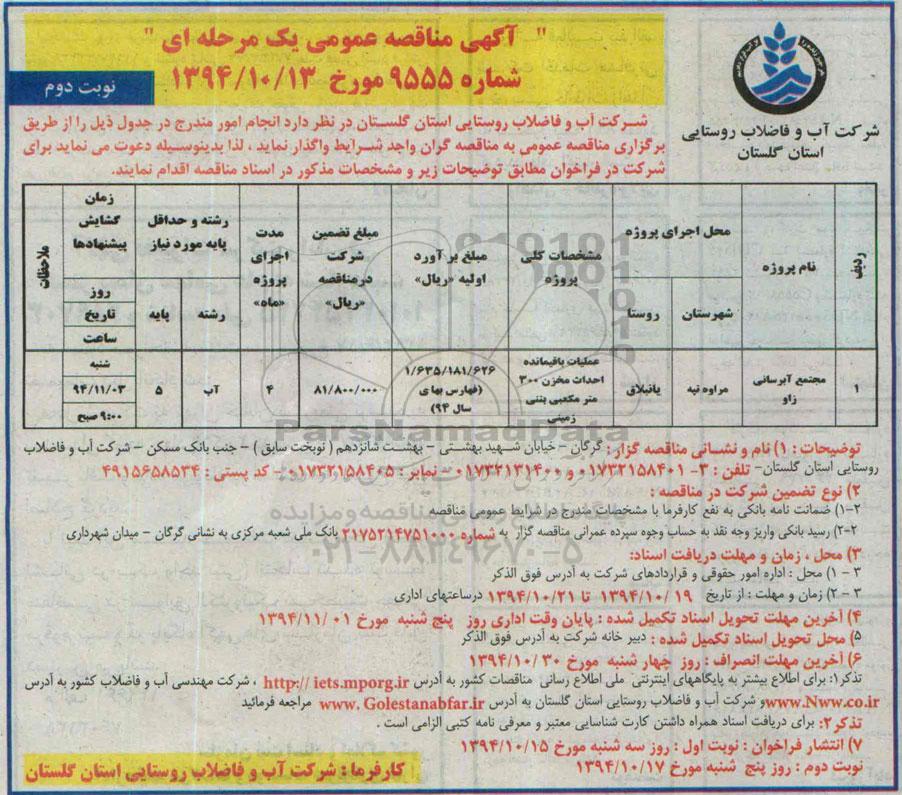 " آگهی مناقصه عمومی یک مرحله ای "
شماره ۹۵۵۵ مورخ ۱۳۹۴/۱۰/۱۳
نوبت دوم
شرکت آب و فاضلاب روستایی
استان گلستان
شرکت آب و فاضلاب روستایی استان گلستان در نظر دارد انجام امور مندرج در جدول ذیل را از طریق
برگزاری مناقصه عمومی به مناقصه گران واجد شرایط واگذار نماید ، لذا بدینوسیله دعوت می نماید برای
شرکت در فراخوان مطابق توضیحات زیر و مشخصات مذکور در اسناد مناقصه اقدام نمایند.
ردیف
نام پروژه
محل اجرای پروژه
شهرستان
روستا
مشخصات کلی
پروژه
مبلغ برآورد
اولیه «ریال»
مبلغ تضمین
شرکت
درمناقصه
«ریال»
مدت
اجرای
پروژه
«ماه»
رشته و حداقل
پایه مورد نیاز
رشته
پایه
زمان
گشایش
پیشنهادها
روز
تاریخ
ساعت
ملاحظات
۱
مجتمع آبرسانی
زاو
مراوه تپه
یانبلاق
عملیات باقیمانده
احداث مخزن ۳۰۰
متر مکعبی بتنی
زمینی
۱/۶۳۵/۱۸۱/۶۲۶
(فهارس بهای
سال ۹۴)
۸۱/۸۰۰/۰۰۰
۴
آب
۵
شنبه
۹۴/۱۱/۰۳
۹:۰۰ صبح
توضیحات : ۱) نام و نشانی مناقصه گزار : گرگان – خیابان شهید بهشتی – بهشت شانزدهم ( نوبخت سابق ) – جنب بانک مسکن – شرکت آب و فاضلاب
روستایی استان گلستان– تلفن : ۳- ۰۱۷۳۲۱۵۸۴۰۱ و ۰۱۷۳۲۱۳۱۴۰۰ – نمابر : ۰۱۷۳۲۱۵۸۴۰۵ – کد پستی : ۴۹۱۵۶۵۸۵۳۴
۲) نوع تضمین شرکت در مناقصه :
۲-۱) ضمانت نامه بانکی به نفع کارفرما با مشخصات مندرج در شرایط عمومی مناقصه
۲-۲) رسید بانکی واریز وجه نقد به حساب وجوه سپرده عمرانی مناقصه گزار به شماره ۲۱۷۵۲۱۴۷۵۱۰۰۰ بانک ملی شعبه مرکزی به نشانی گرگان – میدان شهرداری
۳) محل ، زمان و مهلت دریافت اسناد:
۳ – ۱) محل : اداره امور حقوقی و قراردادهای شرکت به آدرس فوق الذکر
۳ – ۲) زمان و مهلت : از تاریخ ۱۳۹۴/۱۰/ ۱۹ تا ۱۳۹۴/۱۰/۲۱ درساعتهای اداری
۴) آخرین مهلت تحویل اسناد تکمیل شده : پایان وقت اداری روز پنج شنبه مورخ ۰۱ /۱۳۹۴/۱۱
۵) محل تحویل اسناد تکمیل شده : دبیر خانه شرکت به آدرس فوق الذکر
۶) آخرین مهلت انصراف : روز چهار شنبه مورخ ۳۰ /۱۳۹۴/۱۰
تذکر۱: برای اطلاع بیشتر به پایگاههای اینترنتی ملی اطلاع رسانی مناقصات کشور به آدرس http:// iets.mporg.ir ، شرکت مهندسی آب و فاضلاب کشور به آدرس
www.Nww.co.ir و شرکت آب و فاضلاب روستایی استان گلستان به آدرس www. Golestanabfar.ir مراجعه فرمائید
تذکر۲: برای دریافت اسناد همراه داشتن کارت شناسایی معتبر و معرفی نامه کتبی الزامی است .
۷) انتشار فراخوان : نوبت اول : روز سه شنبه مورخ ۱۳۹۴/۱۰/۱۵
نوبت دوم : روز پنج شنبه مورخ ۱۳۹۴/۱۰/۱۷
کارفرما : شرکت آب و فاضلاب روستایی استان گلستان
ParsNamadData
۰۲۱-۸۸۳۴۹۶۷۰-۵